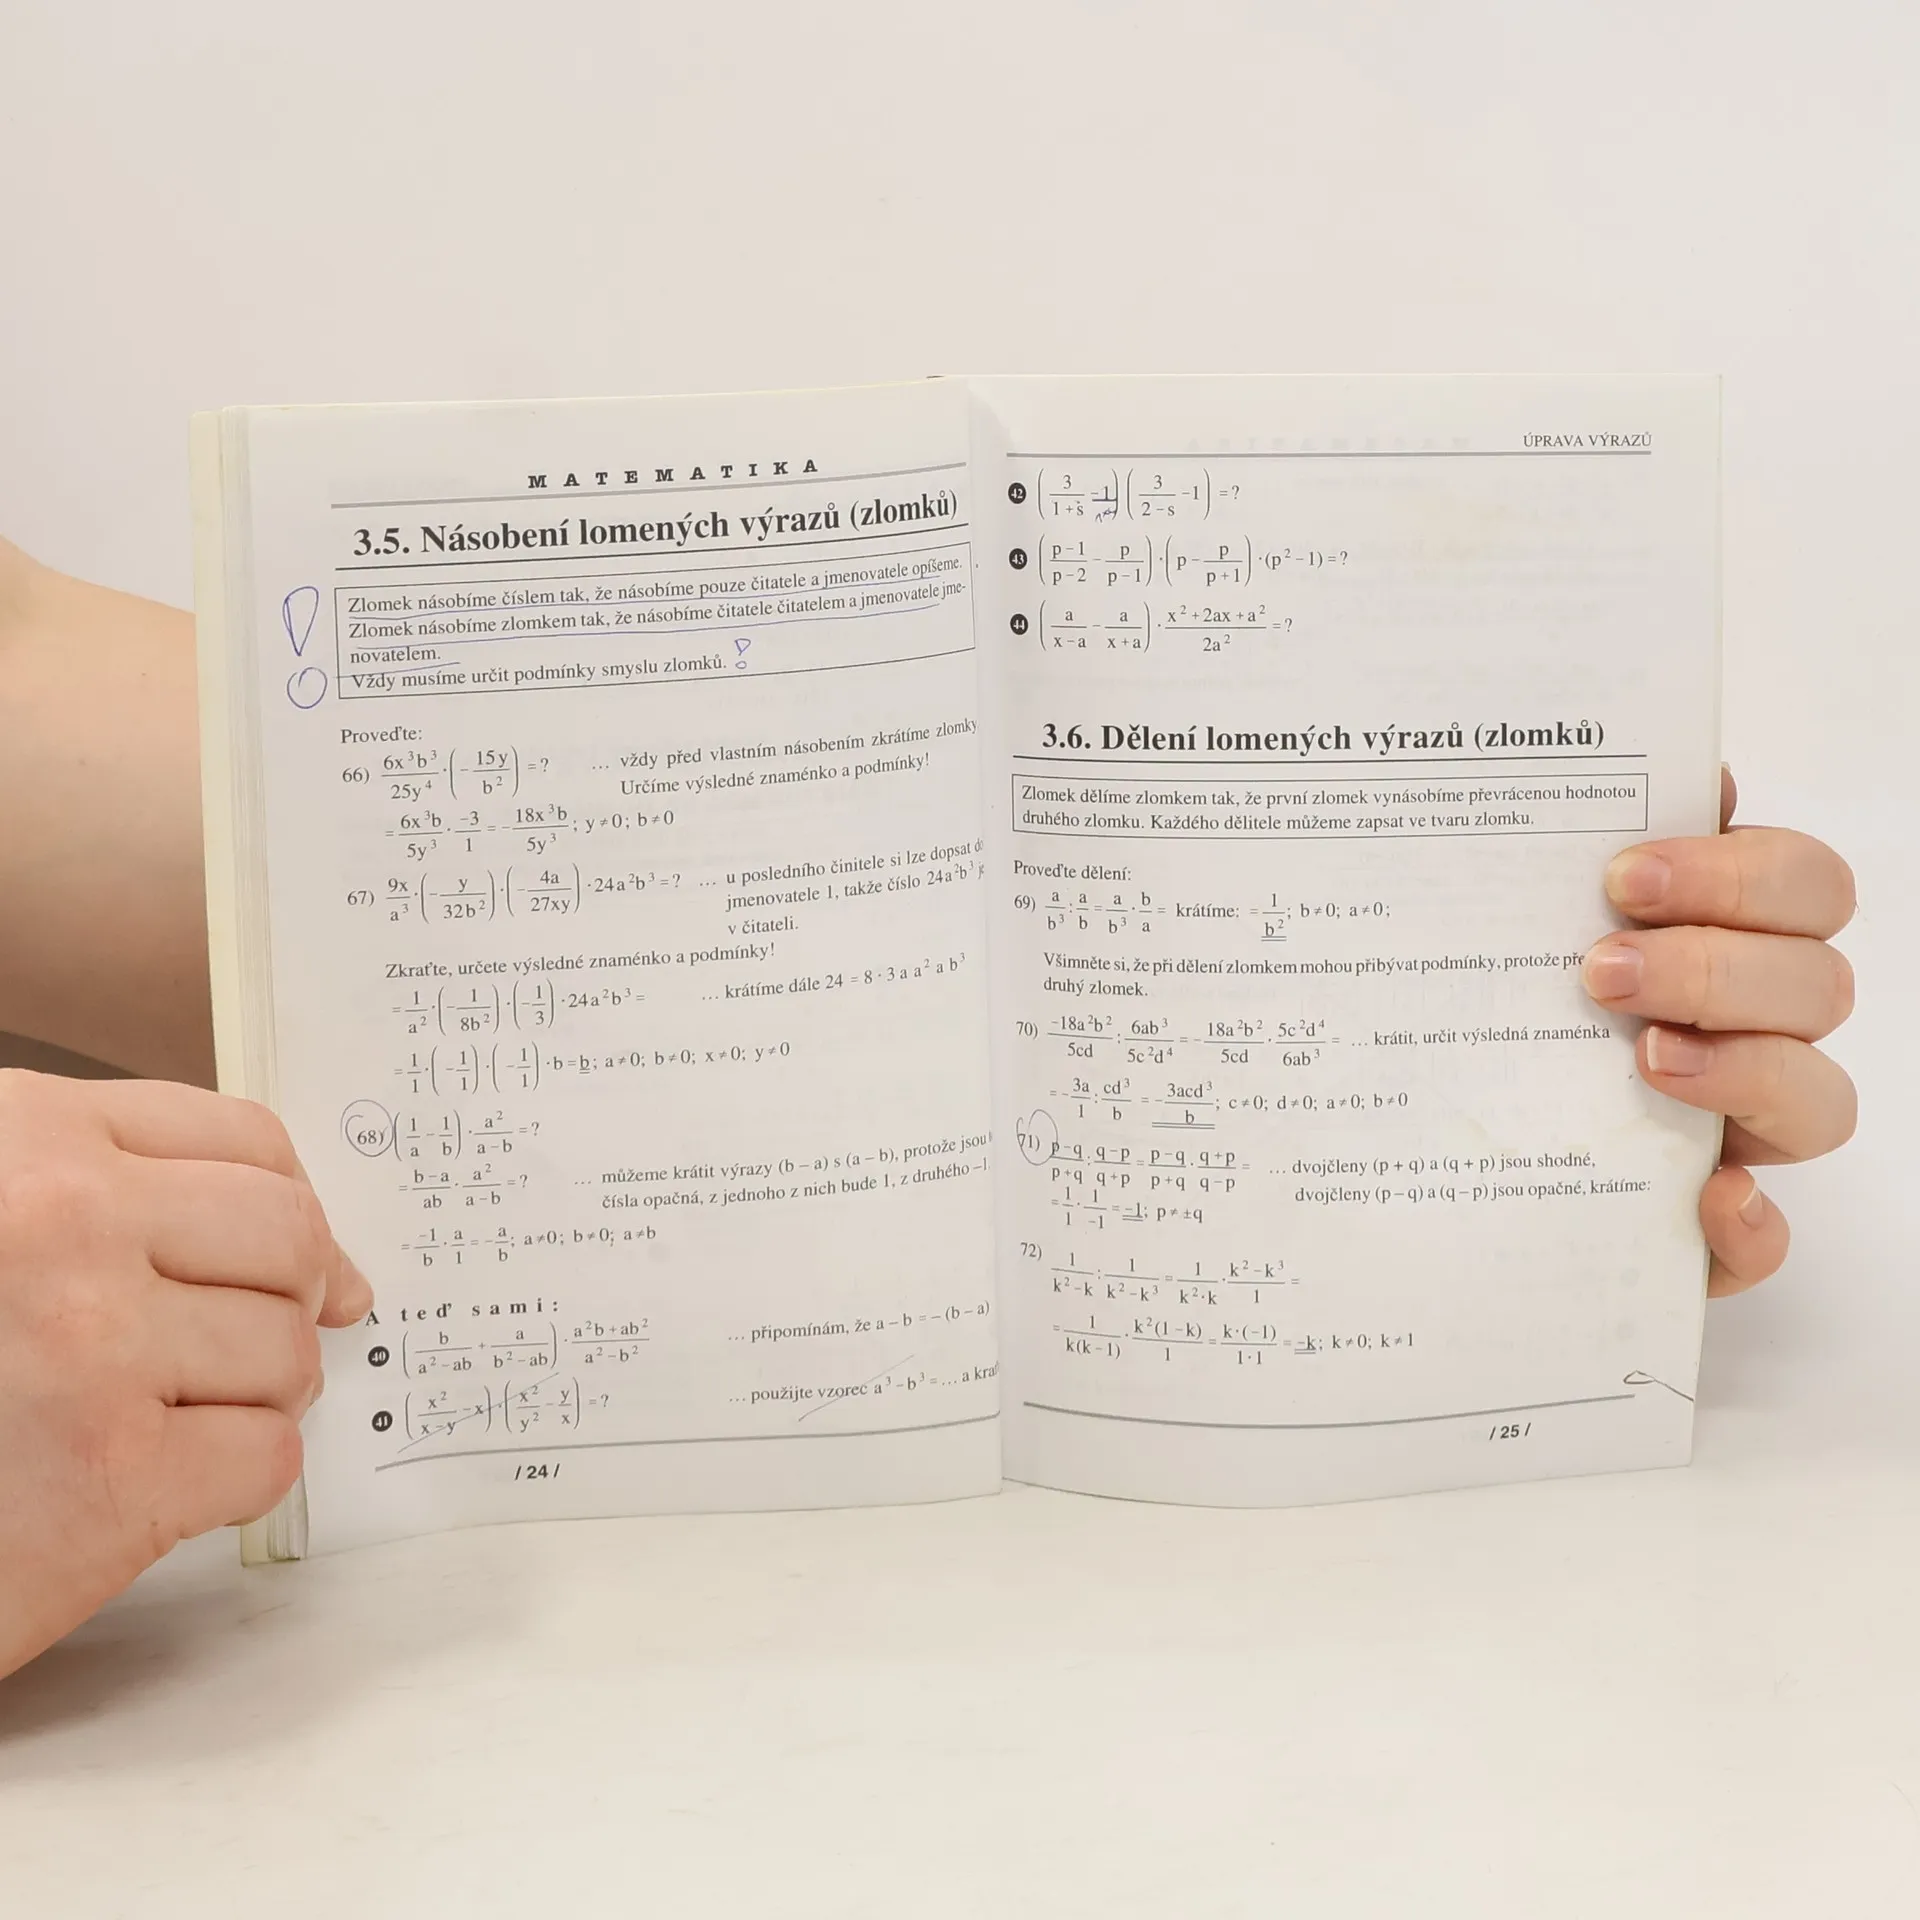 MATEMATIKA
3.5. Násobení lomených výrazů (zlomků)
Zlomek násobíme číslem tak, že násobíme pouze čitatele a jmenovatele opíšeme.
Zlomek násobíme zlomkem tak, že násobíme čitatele čitatelem a jmenovatele jme-
novatelem.
Vždy musíme určit podmínky smyslu zlomků.
Proveďte:
66) 6x³b³/25y⁴ · (− 15y/b²) = ? ... vždy před vlastním násobením zkrátíme zlomky
Určíme výsledné znaménko a podmínky!
= 6x³b/5y³ · −3/1 = − 18x³b/5y³; y ≠ 0; b ≠ 0
67) 9x/a³ · (− y/32b²) · (− 4a/27xy) · 24a²b³ = ? ... u posledního činitele si lze dopsat do
jmenovatele 1, takže číslo 24a²b³ je
v čitateli.
Zkraťte, určete výsledné znaménko a podmínky!
= 1/a² · (− 1/8b²) · (− 1/3) · 24a²b³ = ... krátíme dále 24 = 8 · 3 a a² a b³
= 1/1 · (− 1/1) · (− 1/1) · b = b; a ≠ 0; b ≠ 0; x ≠ 0; y ≠ 0
68) (1/a − 1/b) · a²/a − b = ?
= b − a/ab · a²/a − b = ? ... můžeme krátit výrazy (b − a) s (a − b), protože jsou
čísla opačná, z jednoho z nich bude 1, z druhého −1.
= −1/b · a/1 = − a/b; a ≠ 0; b ≠ 0; a ≠ b
A teď sami:
40 (b/a² − ab + a/b² − ab) · a²b + ab²/a² − b² ... připomínám, že a − b = − (b − a)
41 (x²/x − y − x) · (x²/y² − y/x) = ? ... použijte vzorec a³ − b³ = ... a
/ 24 /
ÚPRAVA VÝRAZŮ
42 (3/1 + s − 1) (3/2 − s − 1) = ?
43 (p − 1/p − 2 − p/p − 1) · (p − p/p + 1) · (p² − 1) = ?
44 (a/x − a − a/x + a) · x² + 2ax + a²/2a² = ?
3.6. Dělení lomených výrazů (zlomků)
Zlomek dělíme zlomkem tak, že první zlomek vynásobíme převrácenou hodnotou
druhého zlomku. Každého dělitele můžeme zapsat ve tvaru zlomku.
Proveďte dělení:
69) a/b³ : a/b = a/b³ · b/a = krátíme: = 1/b²; b ≠ 0; a ≠ 0;
Všimněte si, že při dělení zlomkem mohou přibývat podmínky, protože
druhý zlomek.
70) −18a²b²/5cd : 6ab³/5c²d⁴ = − 18a²b²/5cd · 5c²d⁴/6ab³ = ... krátit, určit výsledná znaménka
= − 3a/1 : cd³/b = − 3acd³/b; c ≠ 0; d ≠ 0; a ≠ 0; b ≠ 0
71) p − q/p + q : q − p/q + p = p − q/p + q · q + p/q − p = ... dvojčleny (p + q) a (q + p) jsou shodné,
dvojčleny (p − q) a (q − p) jsou opačné, krátíme:
= 1/1 · 1/−1 = −1; p ≠ ±q
72) 1/k² − k : 1/k² − k³ = 1/k² · k · k² − k³/1 =
= 1/k(k − 1) · k²(1 − k)/1 = k · (−1)/1 · 1 = −k; k ≠ 0; k ≠ 1
/ 25 /